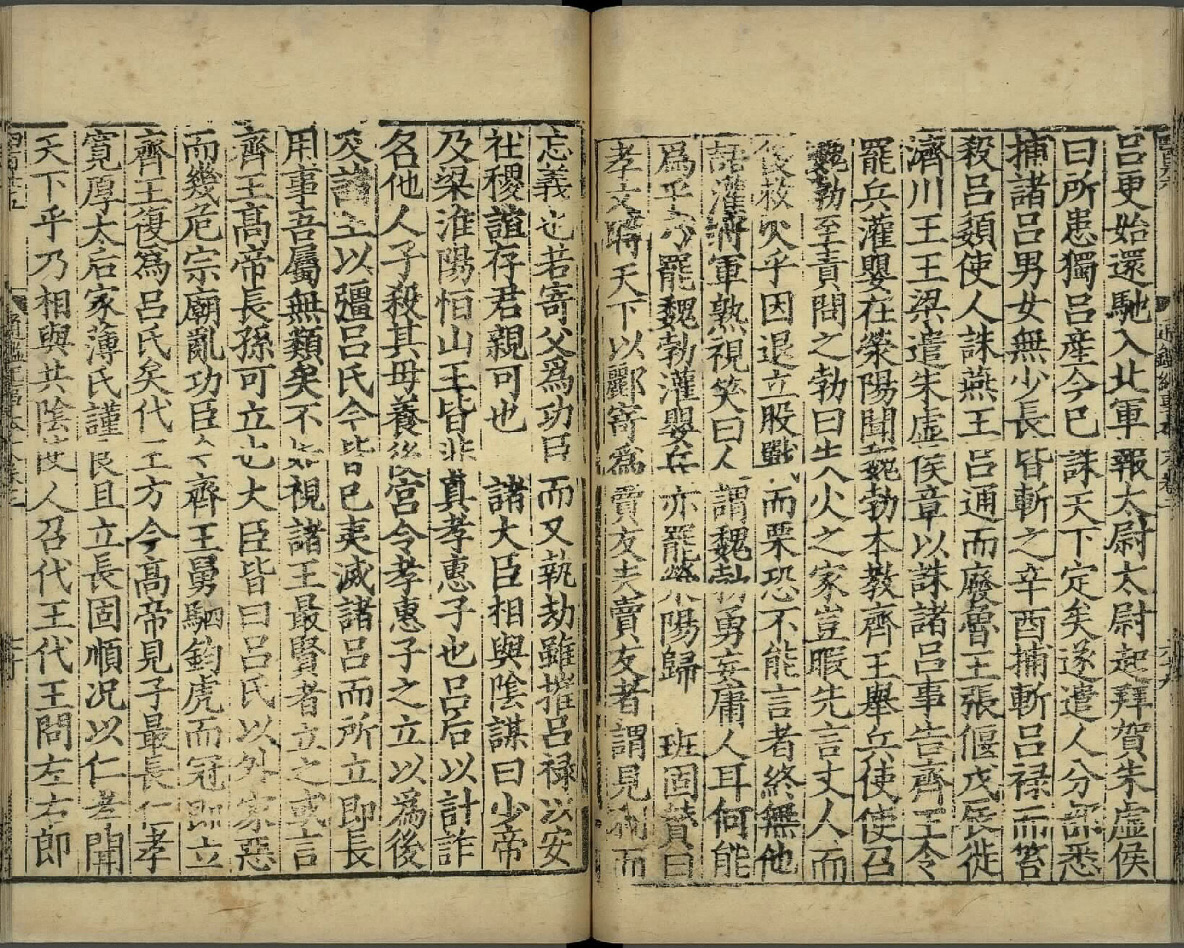 呂更始還馳入北軍報太尉太尉起拜賀朱虛侯
曰所患獨呂産今已誅天下定矣遂遣人分部悉
捕諸呂男女無少長皆斬之辛酉捕斬呂禄而笞
殺呂嬃使人誅燕王呂通而廢魯王張偃戊辰徙
濟川王王梁遣朱虛侯章以誅諸呂事告齊王令
罷兵灌嬰在滎陽聞魏勃本教齊王舉兵使使召
魏勃至責問之勃曰失火之家豈暇先言丈人而
後救火乎因退立股戰而栗恐不能言者終無他
語灌將軍熟視笑曰人謂魏勃勇妄庸人耳何能
爲乎乃罷魏勃灌嬰兵亦罷滎陽歸 班固贊曰
孝文時天下以酈寄爲賣友夫賣友者謂見利而
忘義也若寄父爲功臣而又執劫雖摧呂禄以安
社稷誼存君親可也 諸大臣相與陰謀曰少帝
及梁淮陽恒山王皆非真孝惠子也呂后以計詐
名他人子殺其母養後宫令孝惠子之立以爲後
及諸王以彊呂氏今皆已夷滅諸呂而所立即長
用事吾屬無類矣不如視諸王最賢者立之或言
齊王高帝長孫可立也大臣皆曰呂氏以外家惡
而幾危宗廟亂功臣今齊王舅駟鈞虎而冠即立
齊王復爲呂氏矣代王方今高帝見子最長仁孝
寬厚太后家薄氏謹良且立長固順况以仁孝聞
天下乎乃相與共陰使人召代王代王問左右郎